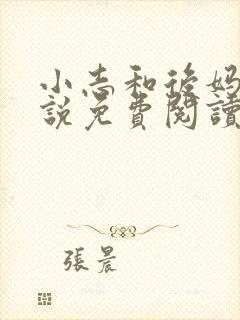 小志和後媽
說免費閱讀
張晨